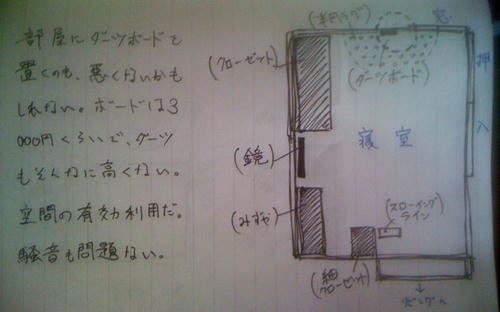 部屋にダーツボードを
置くのも、悪くないかも
しれない。ボードは3
000円くらいで、ダーツ
もそんなに高くない。
空間の有効利用だ。
騒音も問題ない。
(半円ラグ)
窓
(クローゼット)
(ダーツボード)
押入
(鏡)
寝室
(みずや)
(スローイングライン)
(細クローゼット)
↓
リビングへ